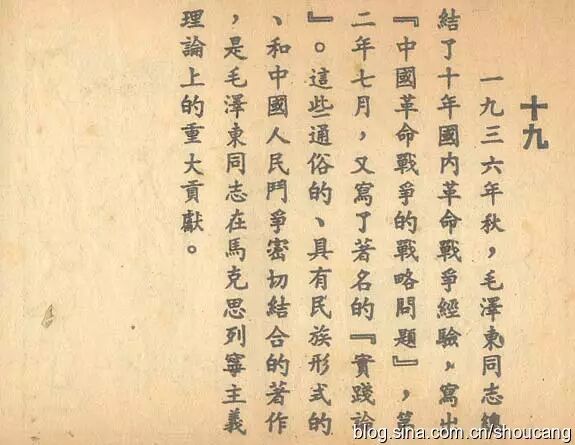 十九
一九三六年秋，毛澤東同志總
結了十年國內革命戰爭經驗，寫出
『中國革命戰爭的戰略問題』，第
二年七月，又寫了著名的『實踐論
』。這些通俗的、具有民族形式的
、和中國人民鬥爭密切結合的著作
，是毛澤東同志在馬克思列寧主義
理論上的重大貢獻。
blog.sina.com.cn/shoucang